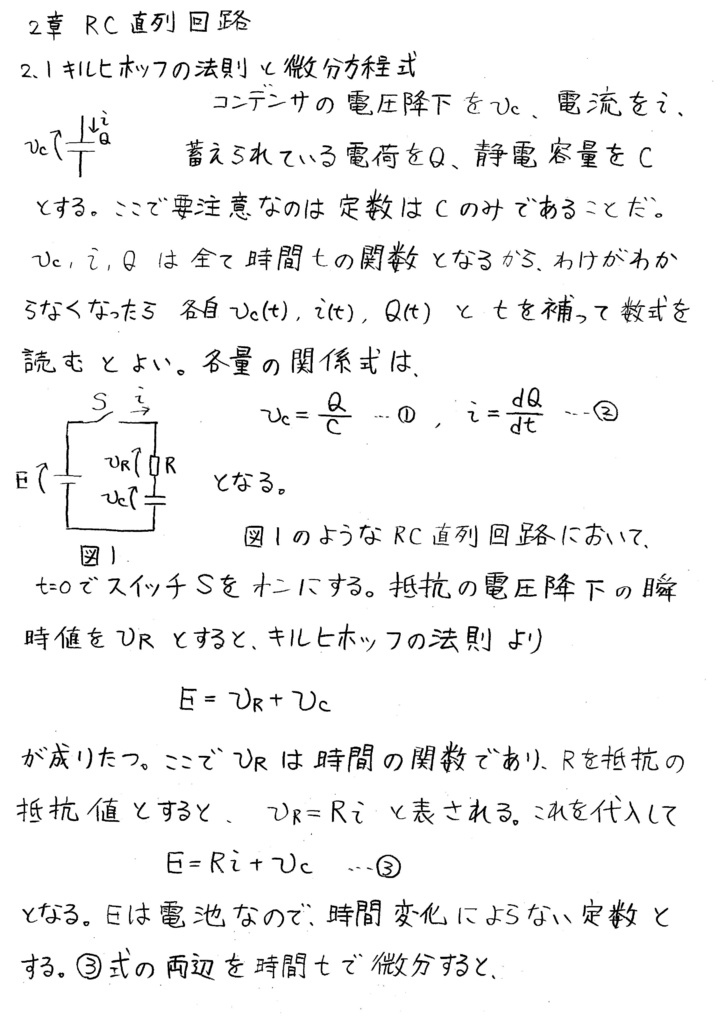 2章 RC直列回路
2.1 キルヒホッフの法則と微分方程式
コンデンサの電圧降下をvc、電流をi、
vc i Q
蓄えられている電荷をQ、静電容量をC
とする。ここで要注意なのは定数はCのみであることだ。
vc, i, Qは全て時間tの関数となるから、わけがわか
らなくなったら各自vc(t), i(t), Q(t)とtを補って数式を
読むとよい。各量の関係式は、
S i
vc = Q/C …①, i = dQ/dt …②
E vR R
vc
となる。
図1のようなRC直列回路において、
図1
t=0でスイッチSをオンにする。抵抗の電圧降下の瞬
時値をvRとすると、キルヒホッフの法則より
E = vR + vc
が成りたつ。ここでvRは時間の関数であり、Rを抵抗の
抵抗値とすると、vR=Riと表される。これを代入して
E=Ri+vc …③
となる。Eは電池なので、時間変化によらない定数と
する。③式の両辺を時間tで微分すると、